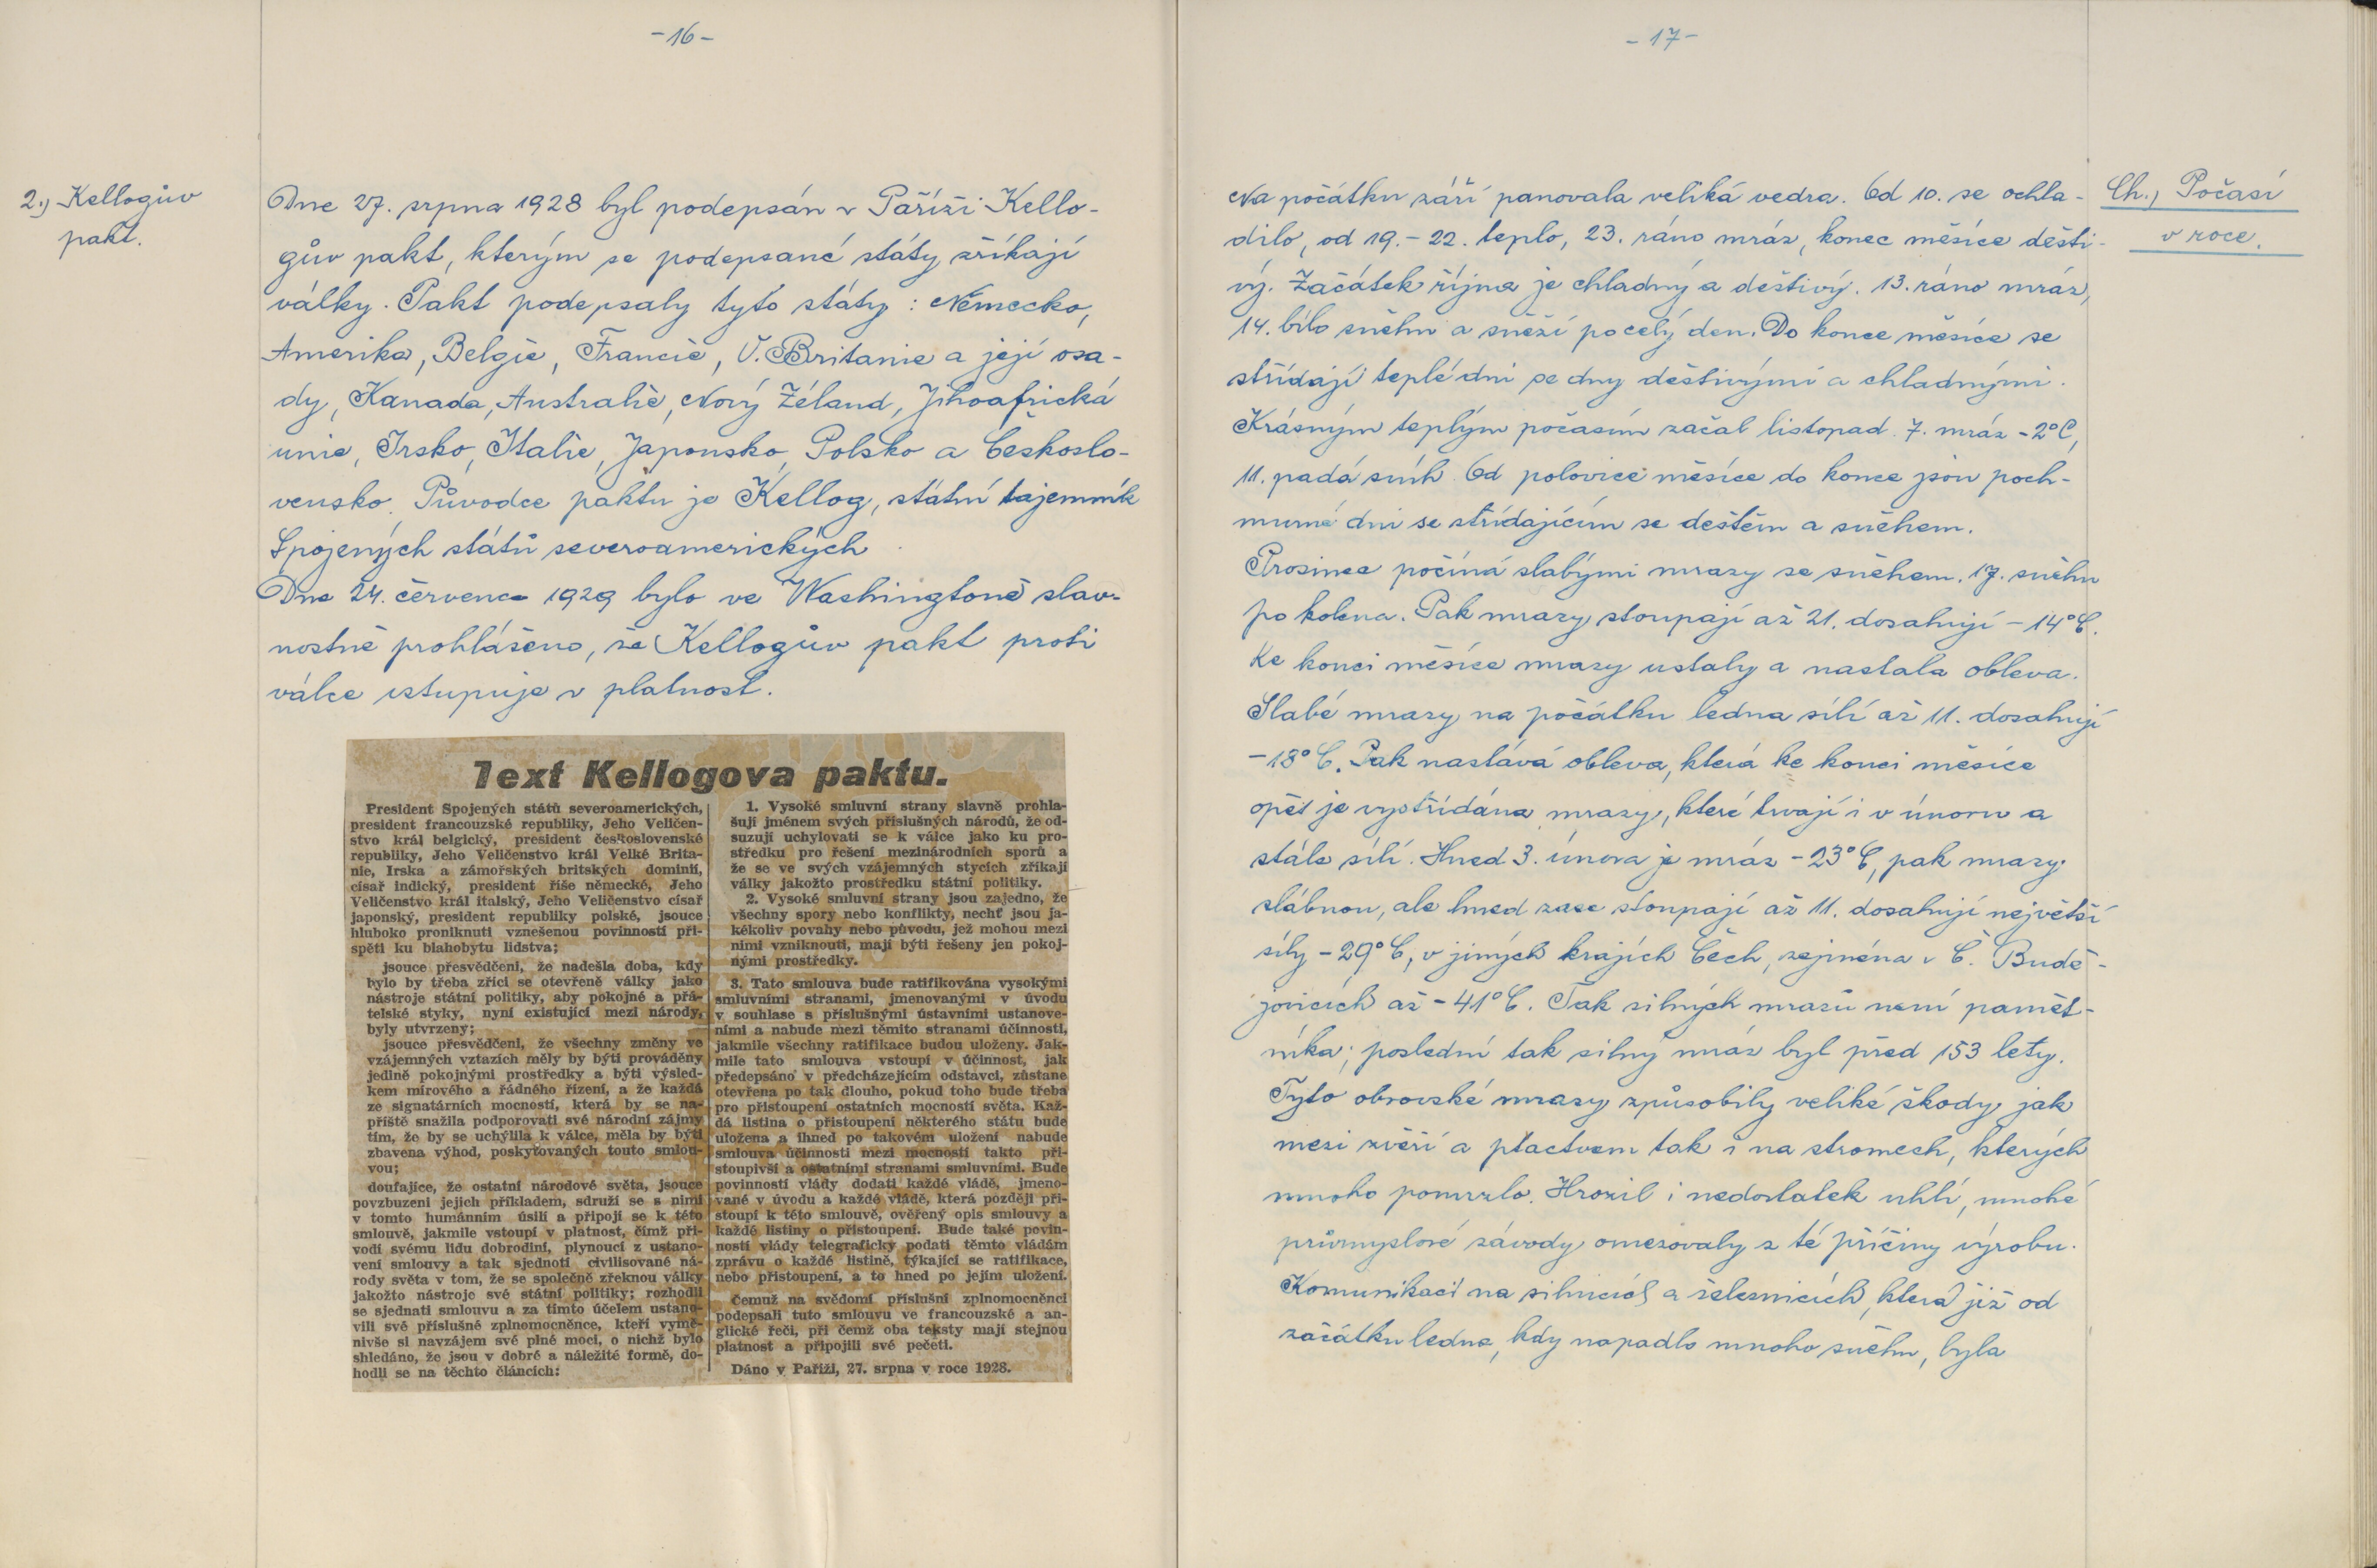 -16-
2.) Kellogův
pakt.
Dne 27. srpna 1928 byl podepsán v Paříži Kello-
gův pakt, kterým se podepsané státy zříkají
války. Pakt podepsaly tyto státy: Německo,
Amerika, Belgie, Francie, V. Britanie a její osa-
dy, Kanada, Australie, Nový Zéland, Jihoafrická
unie, Irsko, Italie, Japonsko, Polsko a Českoslo-
vensko. Původce paktu je Kellog, státní tajemník
Spojených států severoamerických.
Dne 24. července 1929 bylo ve Washingtoně slav-
nostně prohlášeno, že Kellogův pakt proti
válce vstupuje v platnost.
Text Kellogova paktu.
President Spojených států severoamerických,
president francouzské republiky, Jeho Veličen-
stvo král belgický, president československé
republiky, Jeho Veličenstvo král Velké Brita-
nie, Irska a zámořských britských dominií,
císař indický, president říše německé, Jeho
Veličenstvo král italský, Jeho Veličenstvo císař
japonský, president republiky polské, jsouce
hluboko proniknuti vznešenou povinností při-
spěti ku blahobytu lidstva;
jsouce přesvědčeni, že nadešla doba, kdy
bylo by třeba zříci se otevřeně války jako
nástroje státní politiky, aby pokojné a přá-
telské styky, nyní existující mezi národy,
byly utvrzeny;
jsouce přesvědčeni, že všechny změny ve
vzájemných vztazích měly by býti prováděny
jedině pokojnými prostředky a býti výsled-
kem mírového a řádného řízení, a že každá
ze signatárních mocností, která by se na-
příště snažila podporovati své národní zájmy
tím, že by se uchýlila k válce, měla by býti
zbavena výhod, poskytovaných touto smlou-
vou;
doufajíce, že ostatní národové světa, jsouce
povzbuzeni jejich příkladem, sdruží se s nimi
v tomto humánním úsilí a připojí se k této
smlouvě, jakmile vstoupí v platnost, čímž při-
vodí svému lidu dobrodiní, plynoucí z ustano-
vení smlouvy a tak sjednotí civilisované ná-
rody světa v tom, že se společně zřeknou války
jakožto nástroje své státní politiky; rozhodli
se sjednati smlouvu a za tímto účelem ustano-
vili své příslušné zplnomocněnce, kteří vymě-
nivše si navzájem své plné moci, o nichž bylo
shledáno, že jsou v dobré a náležité formě, do-
hodli se na těchto článcích:
1. Vysoké smluvní strany slavně prohla-
šují jménem svých příslušných národů, že od-
suzují uchylovati se k válce jako ku pro-
středku pro řešení mezinárodních sporů a
že se ve svých vzájemných stycích zříkají
války jakožto prostředku státní politiky.
2. Vysoké smluvní strany jsou zajedno, že
všechny spory nebo konflikty, nechť jsou ja-
kékoliv povahy nebo původu, jež mohou mezi
nimi vzniknouti, mají býti řešeny jen pokoj-
nými prostředky.
3. Tato smlouva bude ratifikována vysokými
smluvními stranami, jmenovanými v úvodu
v souhlase s příslušnými ústavními ustanove-
ními a nabude mezi těmito stranami účinnosti,
jakmile všechny ratifikace budou uloženy. Jak-
mile tato smlouva vstoupí v účinnost, jak
předepsáno v předcházejícím odstavci, zůstane
otevřena po tak dlouho, pokud toho bude třeba
pro přistoupení ostatních mocností světa. Kaž-
dá listina o přistoupení některého státu bude
uložena a ihned po takovém uložení nabude
smlouva účinnosti mezi mocností takto při-
stoupivší a ostatními stranami smluvními. Bude
povinností vlády dodati každé vládě, jmeno-
vané v úvodu a každé vládě, která později při-
stoupí k této smlouvě, ověřený opis smlouvy a
každé listiny o přistoupení. Bude také povin-
ností vlády telegraficky podati těmto vládám
zprávu o každé listině, týkající se ratifikace,
nebo přistoupení, a to hned po jejím uložení.
Čemuž na svědomí příslušní zplnomocněnci
podepsali tuto smlouvu ve francouzské a an-
glické řeči, při čemž oba teksty mají stejnou
platnost a připojili své pečeti.
Dáno v Paříži, 27. srpna v roce 1928.
-17-
Ch., Počasí
v roce.
Na počátku září panovala veliká vedra. Od 10. se ochla-
dilo, od 19.-22. teplo, 23. ráno mráz, konec měsíce dešti-
vý. Začátek října je chladný a deštivý. 13. ráno mráz,
14. bílo sněhu a sněží po celý den. Do konce měsíce se
střídají teplé dni se dny deštivými a chladnými.
Krásným teplým počasím začal listopad. 7. mráz -2°C,
11. padá sníh. Od polovice měsíce do konce jsou poch-
murné dni se střídajícím se deštěm a sněhem.
Prosinec počíná slabými mrazy se sněhem. 17. sněhu
po kolena. Pak mrazy stoupají až 21. dosahují -14°C.
Ke konci měsíce mrazy ustaly a nastala obleva.
Slabé mrazy na počátku ledna sílí až 11. dosahují
-18°C. Pak nastává obleva, která ke konci měsíce
opět je vystřídána mrazy, které trvají i v únoru a
stále sílí. Hned 3. února je mráz -23°C, pak mrazy
slábnou, ale hned zase stoupají až 11. dosahují největší
síly -29°C, v jiných krajích Čech, zejména v Č. Budě-
jovicích až -41°C. Tak silných mrazů není pamět-
níka; poslední tak silný mráz byl před 153 lety.
Tyto obrovské mrazy způsobily veliké škody jak
mezi zvěří a ptactvem tak i na stromech, kterých
mnoho pomrzlo. Hrozil i nedostatek uhlí, mnohé
průmyslové závody omezovaly z té příčiny výrobu.
Komunikaci na silnicích a železnicích, která již od
začátku ledna, kdy napadlo mnoho sněhu, byla